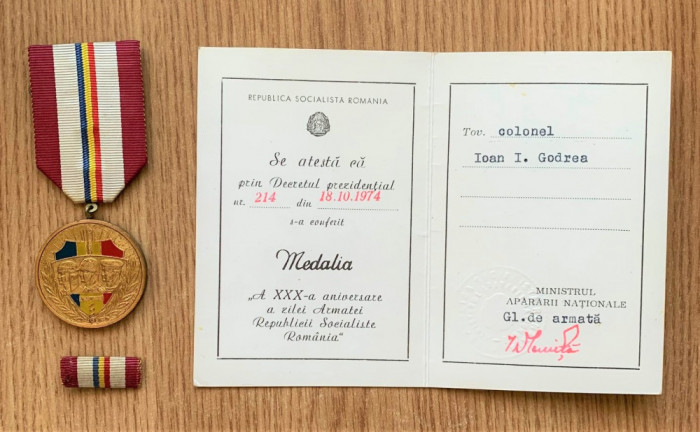 REPUBLICA SOCIALISTA ROMANIA
Se atestă că
prin Decretul prezidențial
nr. 214 din 18.10.1974
s-a conferit
Medalia
„A XXX-a aniversare
a zilei Armatei
Republicii Socialiste
România“
Tov. colonel
Ioan I. Godrea
MINISTRUL
APĂRĂRII NAȚIONALE
Gl.de armată